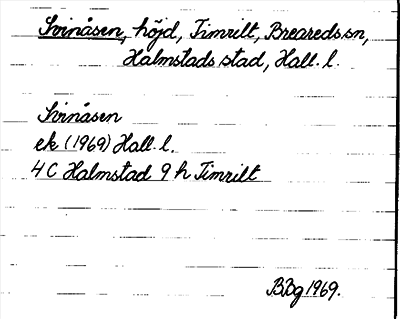 Svinåsen, höjd, Timrilt, Breareds sn,
Halmstads stad, Hall. l.
Svinåsen
ek (1969) Hall. l.
4 C Halmstad 9 h Timrilt
BBg 1969.